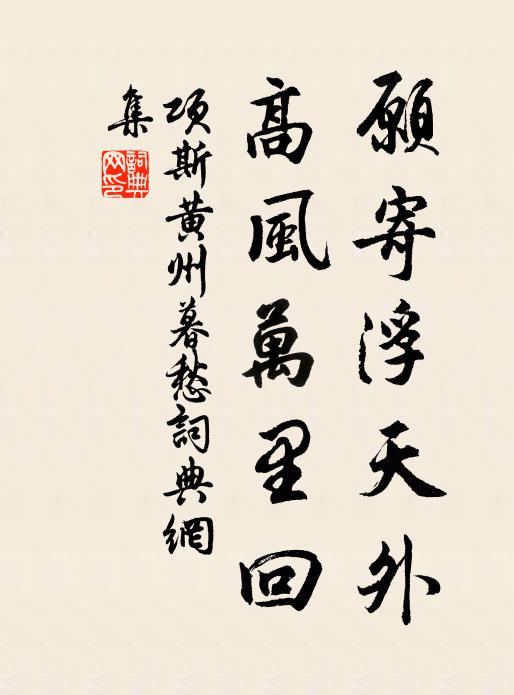 願寄浮天外
高風萬里回
項斯黃州暮愁詞典網
集
詞典網印